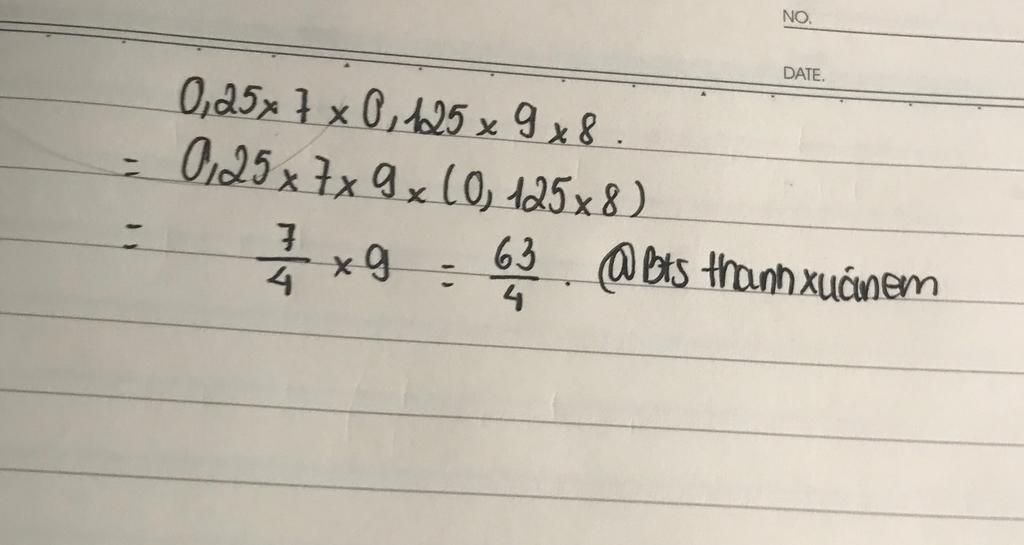 NO.
DATE.
0,25 x 7 x 0,125 x 9 x 8.
= 0,25 x 7 x 9 x (0,125 x 8)
= 7/4 x 9 = 63/4. @Bts thanhxuânem